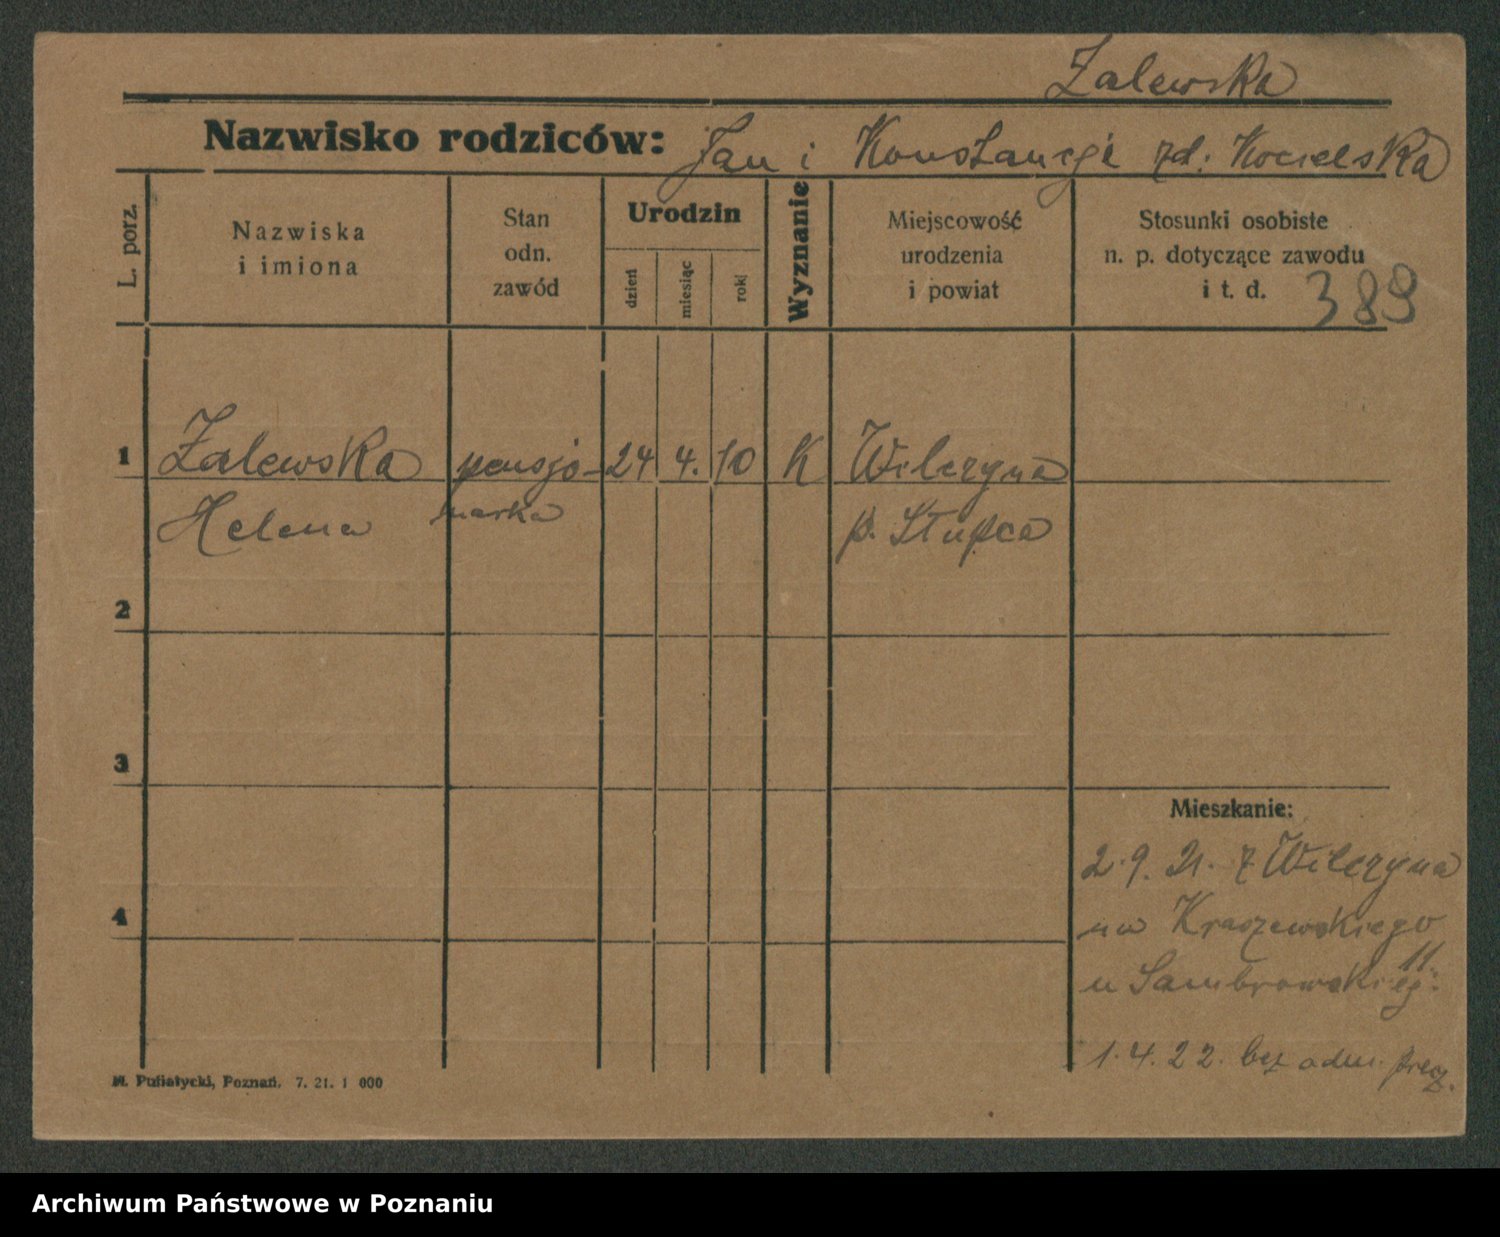 Zalewska
Nazwisko rodziców: Jan i Konstancji zd. Kocielska
L. porz.
Nazwiska
i imiona
Stan
odn.
zawód
Urodzin
dzień
miesiąc
rok
Wyznanie
Miejscowość
urodzenia
i powiat
Stosunki osobiste
n. p. dotyczące zawodu
i t. d.
389
1 Zalewska pensjo- 24 4. 10 K Wilczyna
Helena narka p. Słupca
2
3
4
Mieszkanie:
2.9.21. z Wilczyna
na Kraszewskiego
11.
u Sambrowskieg.
1.4.22. bez adm. precz.
M. Putiatycki, Poznań. 7. 21. 1 000
Archiwum Państwowe w Poznaniu